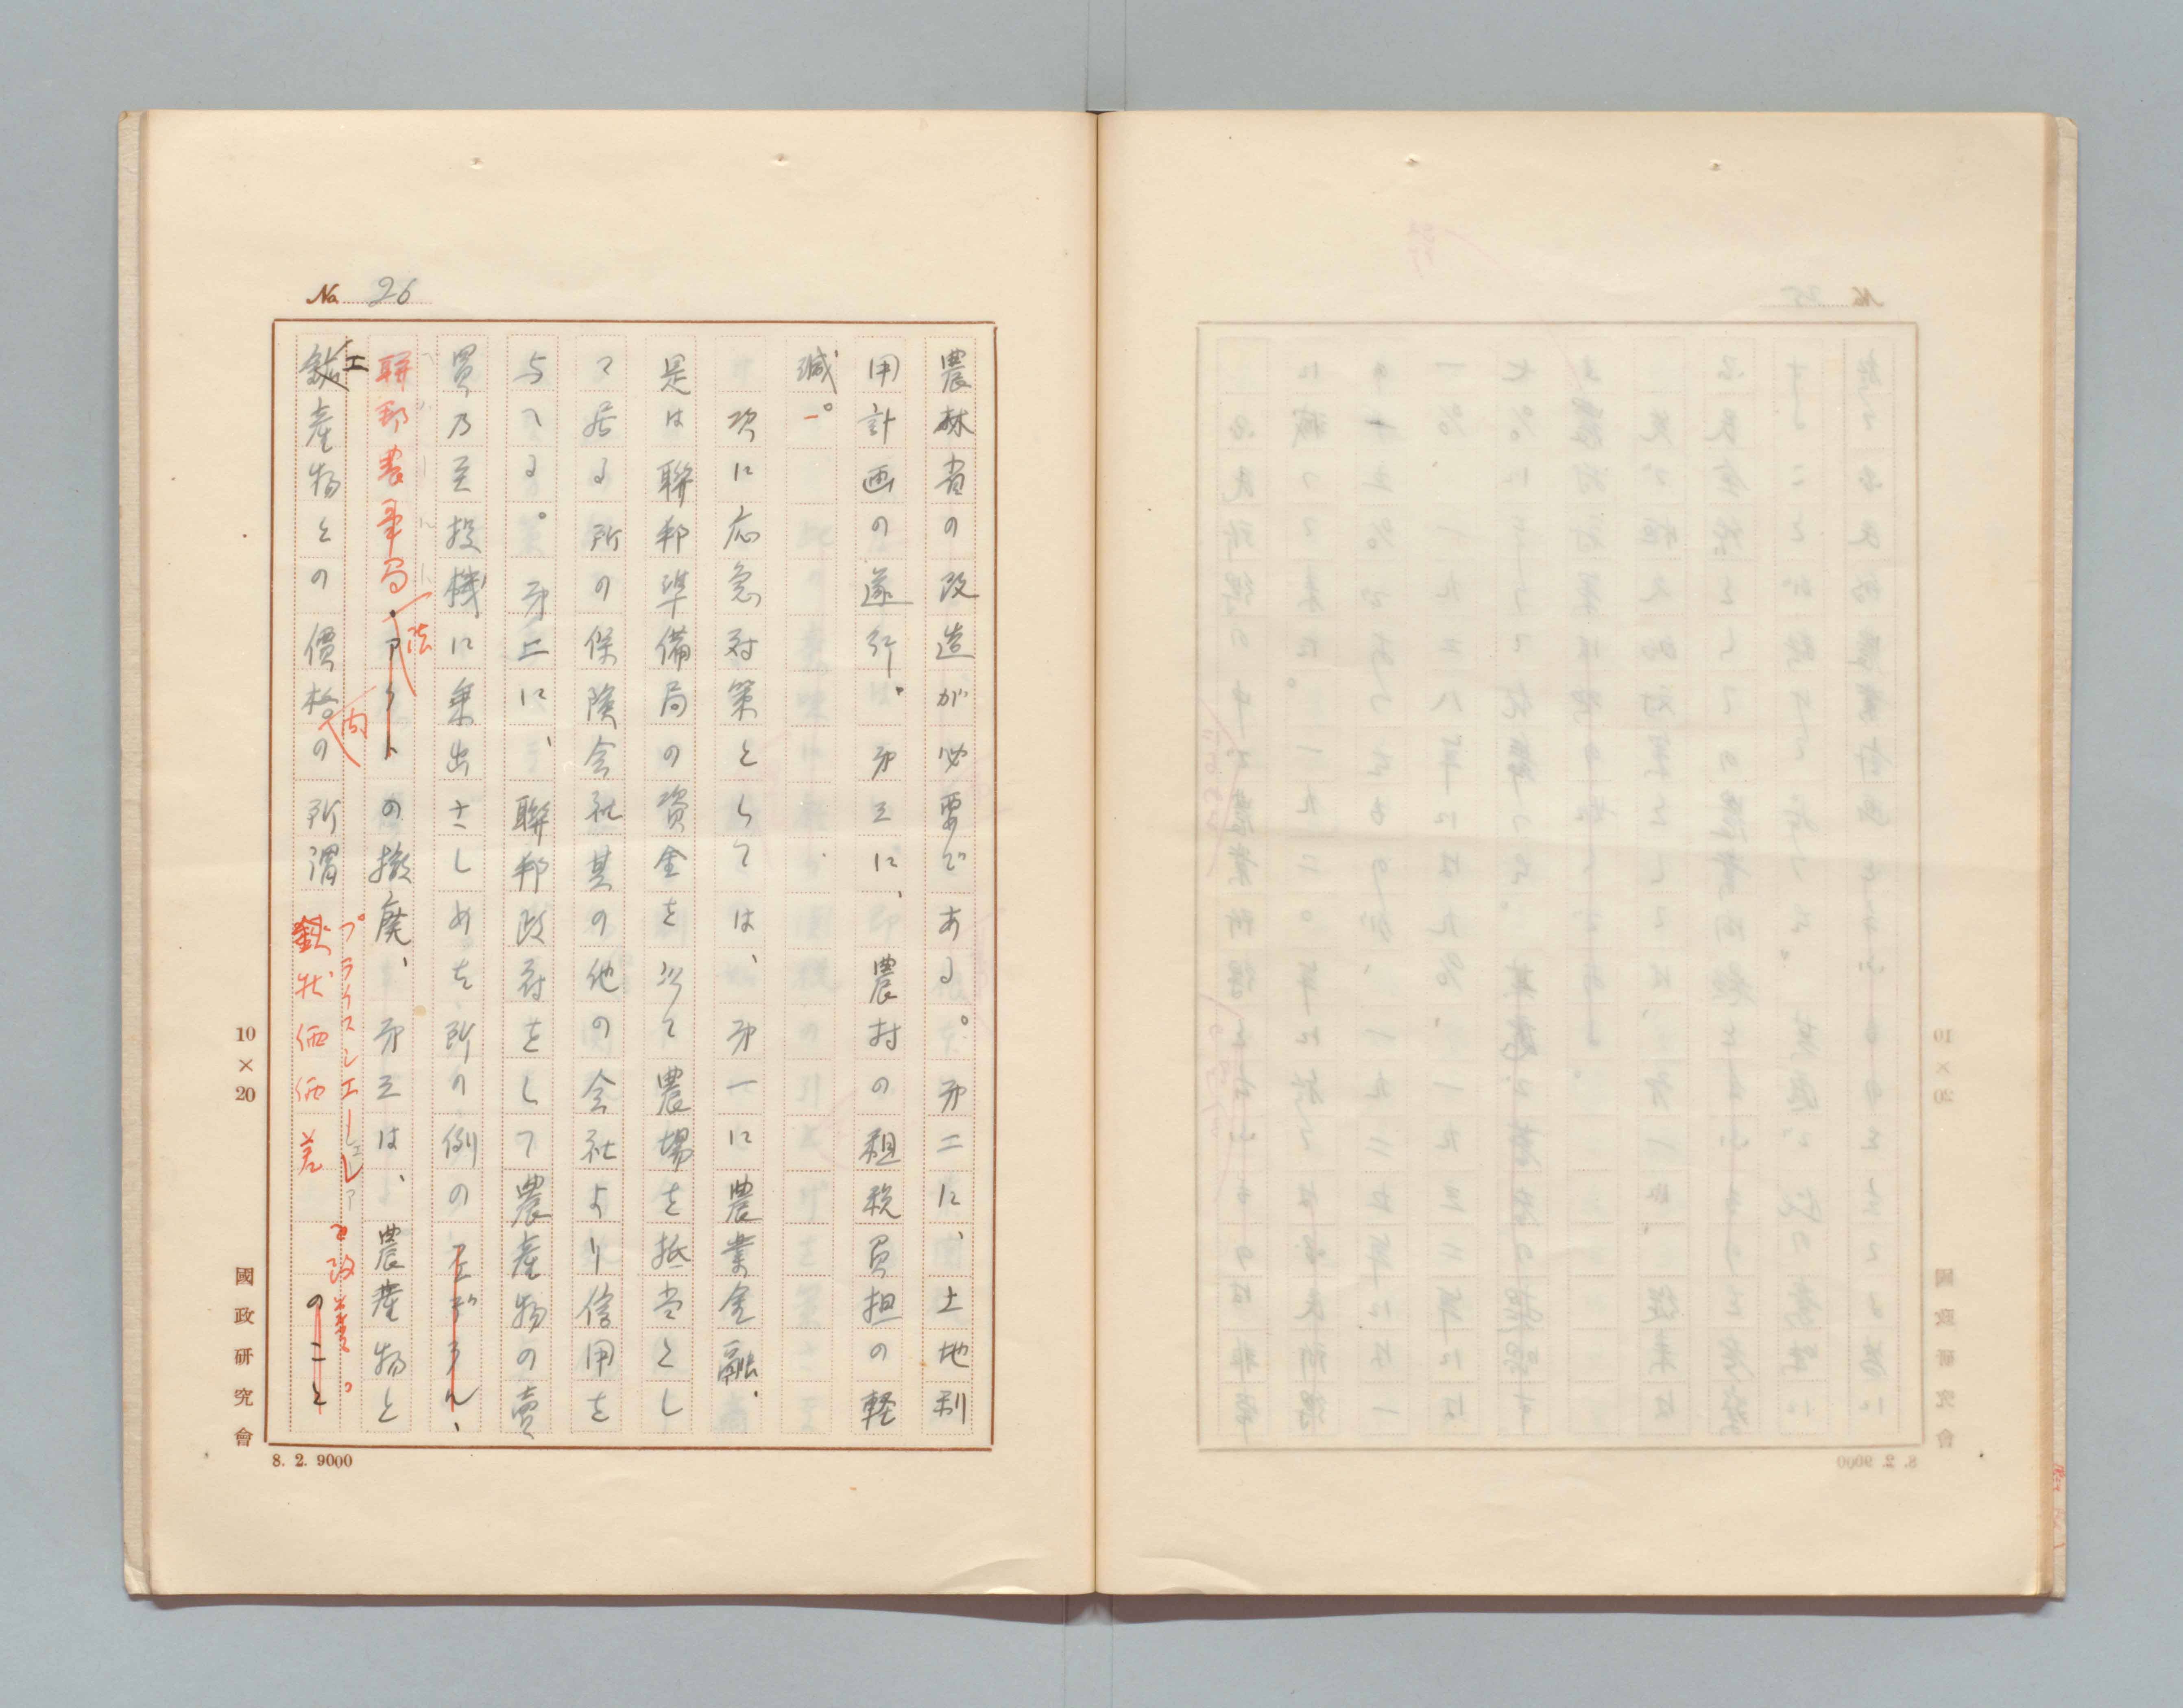 No. 26
農林省の改造が必要である。㐧二に、土地利
用計画の遂行。㐧三に、農村の租税負担の軽
減。
次に応急対策としては、㐧一に農業金融、
是は聯邦準備局の資金を以て農場を抵当とし
て居る所の保険会社其の他の会社より信用を
与へる。㐧二に、聯邦政府をして農産物の賣
買乃至投機に乗出さしめた所の例の
聯邦農事局法の撤廃、㐧三は、農産物と
工産物との價格の所謂
向
鋏状価価差
プライスシエーレ
を改善。
のこと
10×20
國政研究會
8. 2. 9000